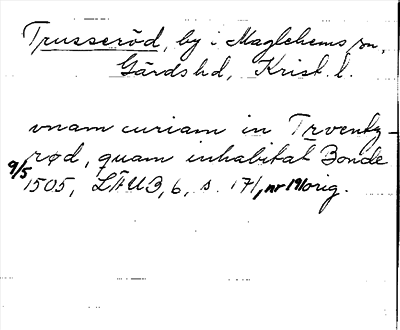 Trusseröd, by i Maglehems sn,
Gärds hd, Krist. l.
unam curiam in Trventz-
rød, quam inhabitat Bonde
9/5 1505, LÄUB, 6, s. 171, nr 191 orig.